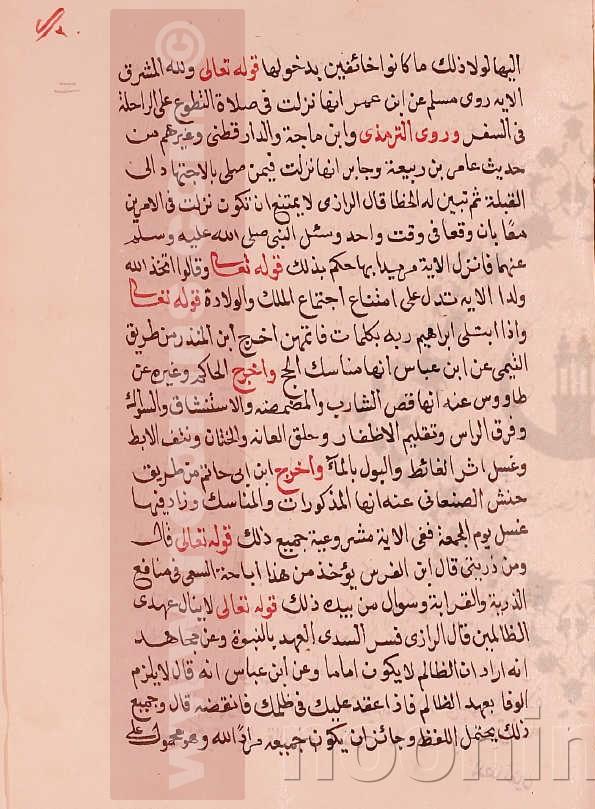 اليها لولا ذلك ما كانوا خائفين بدخولها قوله تعالى ولله المشرق
الايه روى مسلم عن ابن عمر انها نزلت في صلاة التطوع على الراحلة
في السفر وروى الترمذى وابن ماجة والدارقطنى وغيرهم من
حديث عامر بن ربيعة وجابر انها نزلت فيمن صلى بالاجتهاد الى
القبلة ثم تبين له الخطا قال الرازى لا يمتنع ان تكون نزلت في الامرين
معا بان وقعا في وقت واحد وسئل النبى صلى الله عليه وسلم
عنهما فانزل الاية مريدا بها حكم بذلك قوله تعالى وقالوا اتخذ الله
ولدا الايه تدل على امتناع اجتماع الملك والولادة قوله تعالى
واذا ابتلى ابراهيم ربه بكلمات فاتمهن اخرج ابن المنذر من طريق
التيمى عن ابن عباس انها مناسك الحج واخرج الحاكم وغيره عن
طاووس عنه انها قص الشارب والمضمضه والاستنشاق والسواك
وفرق الراس وتقليم الاظفار وحلق العانه والختان ونتف الابط
وغسل اثر الغائط والبول بالماء واخرج ابن ابى حاتم من طريق
حنش الصنعانى عنه انها المذكورات والمناسك وزاد فيها
غسل يوم الجمعة ففى الاية مشروعية جميع ذلك قوله تعالى قال
ومن ذريتى قال ابن الفرس يؤخذ من هذا اباحة السعى في منافع
الذرية والقرابة وسوال من بيده ذلك قوله تعالى لا ينال عهدى
الظالمين قال الرازى فسر السدى العهد بالنبوة وعن مجاهد
انه اراد ان الظالم لا يكون اماما وعن ابن عباس انه قال لا يلزم
الوفا بعهد الظالم فاذا عقد عليك في ظلمك فانقضه قال وجميع
ذلك يحتمل اللفظ وجائز ان يكون جميعه مراد الله وهو محمول على
noorin